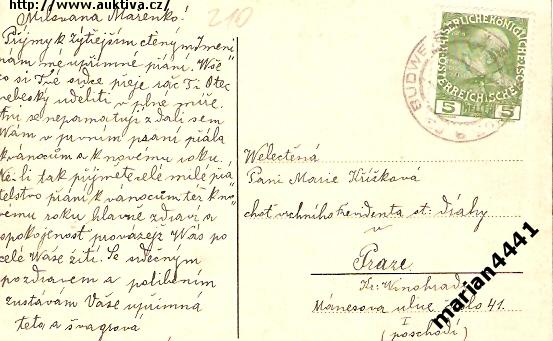 http://www.auktiva.cz/
Milovaná Mařenko!
210
Přijmy k zýtřejším ctěným Jmeni
nám mé upřímné přání. Vše
co si Tvé srdce přeje rač Ti Otec
nebeský uděliti v plné míře.
Ani se nepamatuji zdali sem
Vám v prvním psaní přála
k vánocům a k novému roku.
Ne-li tak přijměte celé milé přá
telstvo přání k vánocům též k no
vému roku hlavně zdraví a
spokojenost provázejž Vás po
celé Vaše žití. Se srdečným
pozdravem a políbením
zůstávám Vaše upřímná
teta a švagrova
BUDWE
KAISERLICHE KÖNIGLICHE
ÖSTERREICHISCHE POST
5 HELLER 5
Welectěná
Paní Marie Křížková
choť vrchního revidenta st. dráhy
v
Praze.
Kr: Vinohrady
Mánesova ulice číslo 41.
I
(poschodí)
marian4441